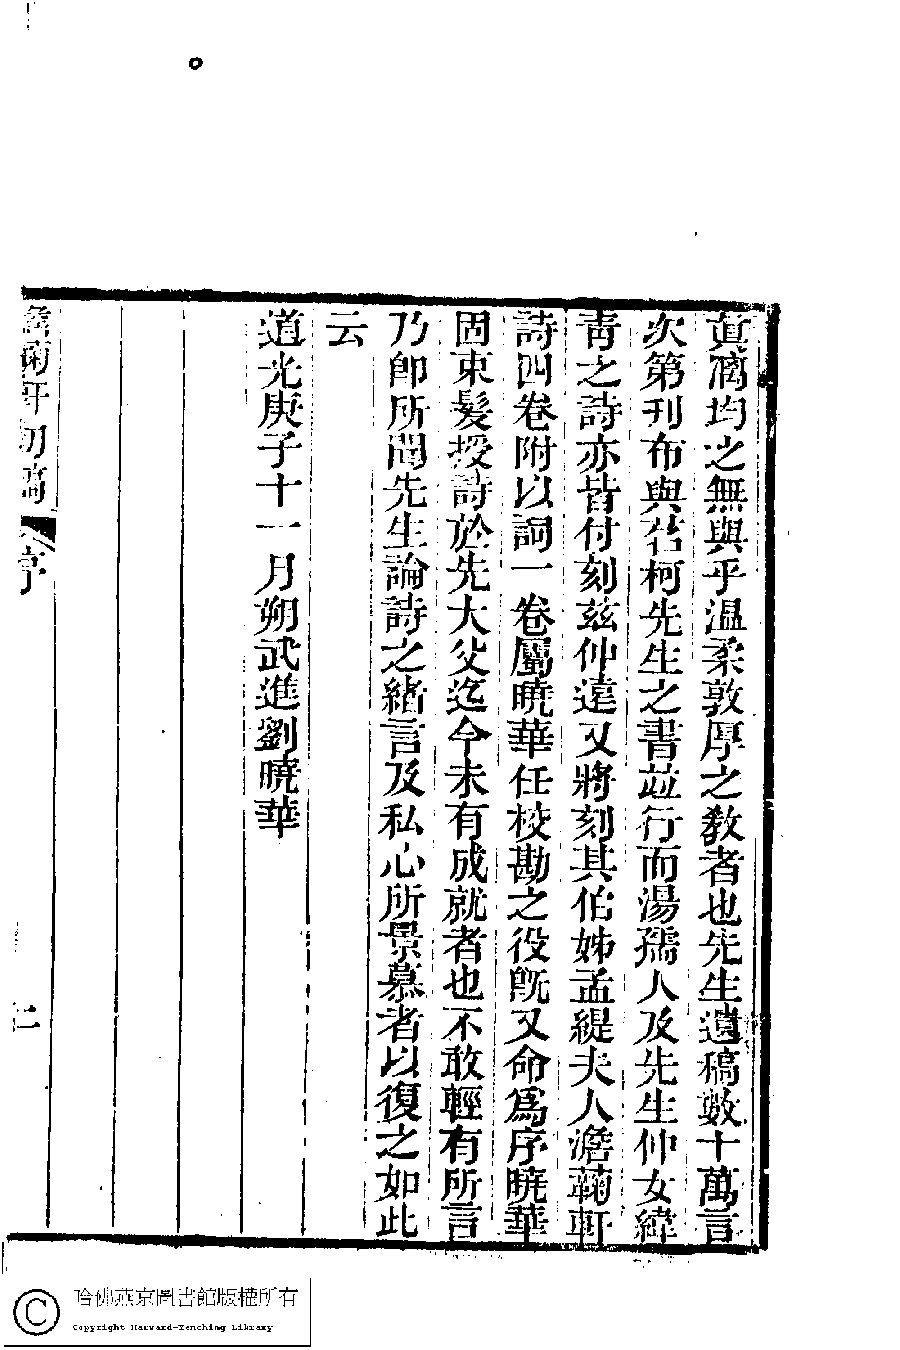 道漓均之無與乎温柔敦厚之教者也先生遺稿數十萬言
次第刊布與茗柯先生之書竝行而湯孺人及先生仲女緯
青之詩亦皆付刻茲仲遠又將刻其伯姊孟緹夫人澹蘜軒
詩四卷附以詞一卷屬曉華任校勘之役旣又命爲序曉華
固束髮授詩於先大父迄今未有成就者也不敢輕有所言
乃卽所聞先生論詩之緖言及私心所景慕者以復之如此
云
道光庚子十一月朔武進劉曉華
澹蘜軒初稿 序 二
哈佛燕京圖書館版權所有
Copyright Harvard-Yenching Library